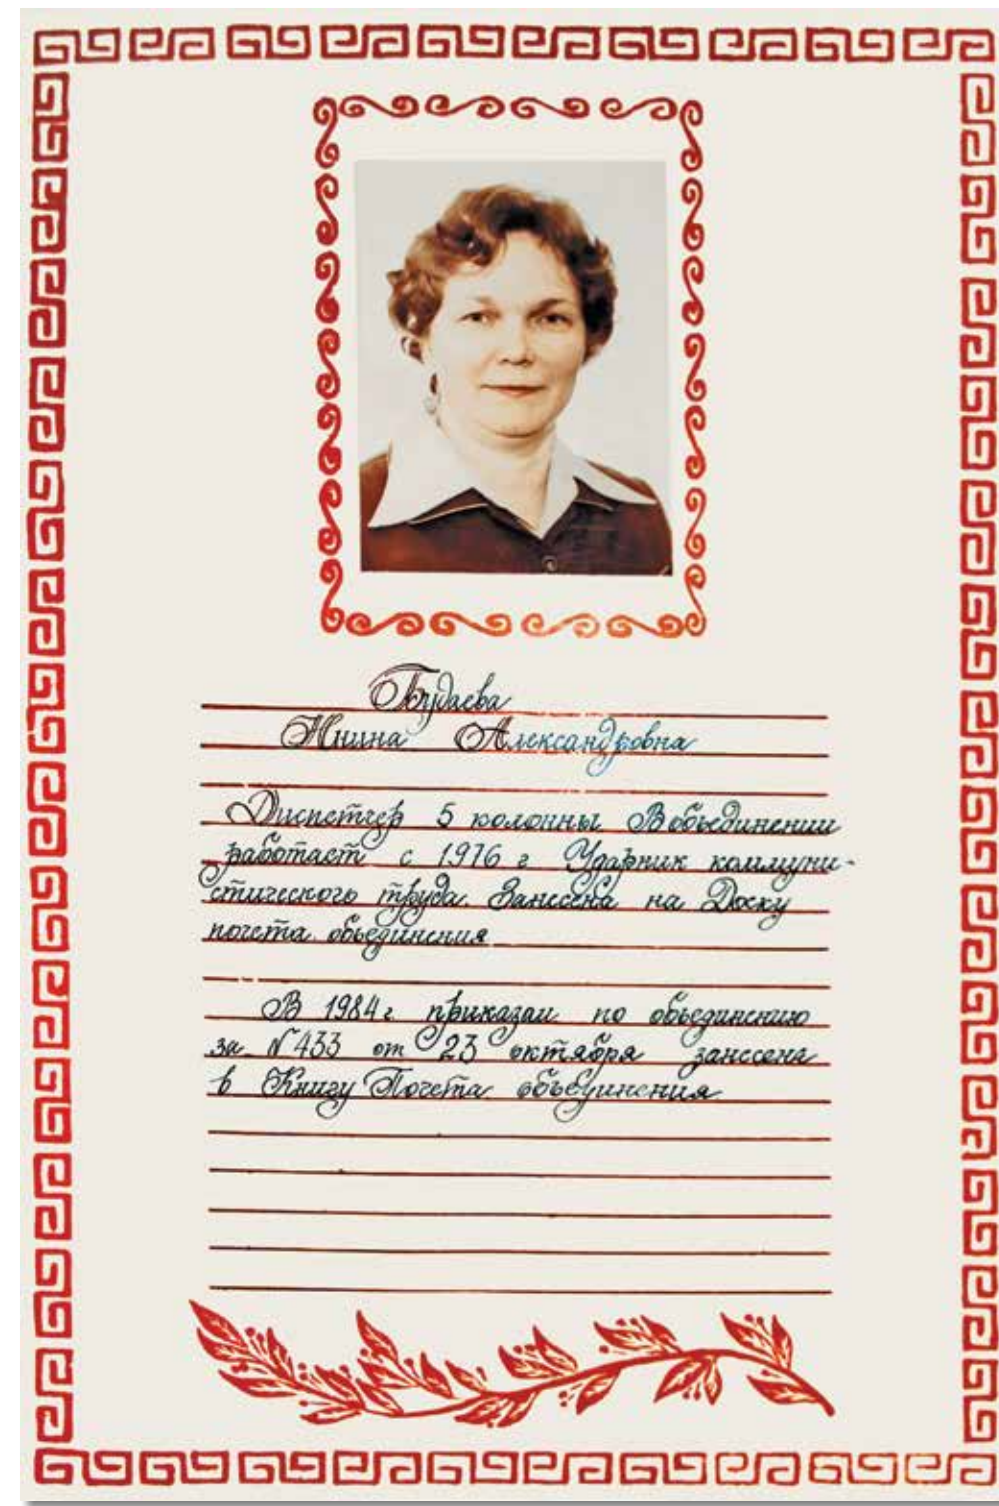 Будаева
Нина Александровна
Диспетчер 5 колонны В объединении
работает с 1976 г Ударник коммуни-
стического труда. Занесена на Доску
почета объединения
В 1984 г. приказом по объединению
за №433 от 23 октября занесена
в Книгу Почета объединения